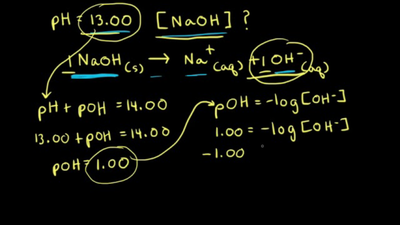 pH = 13.00 [NaOH] ?
1 NaOH(s) → Na+(aq) + 1 OH-(aq)
pH + pOH = 14.00
13.00 + pOH = 14.00
pOH = 1.00
pOH = -log [OH-]
1.00 = -log [OH-]
-1.00